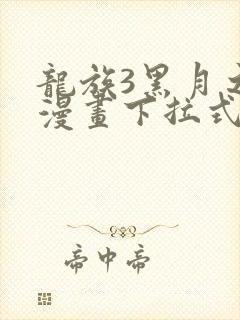 龍族3黑月之
漫畫下拉式
帝中帝